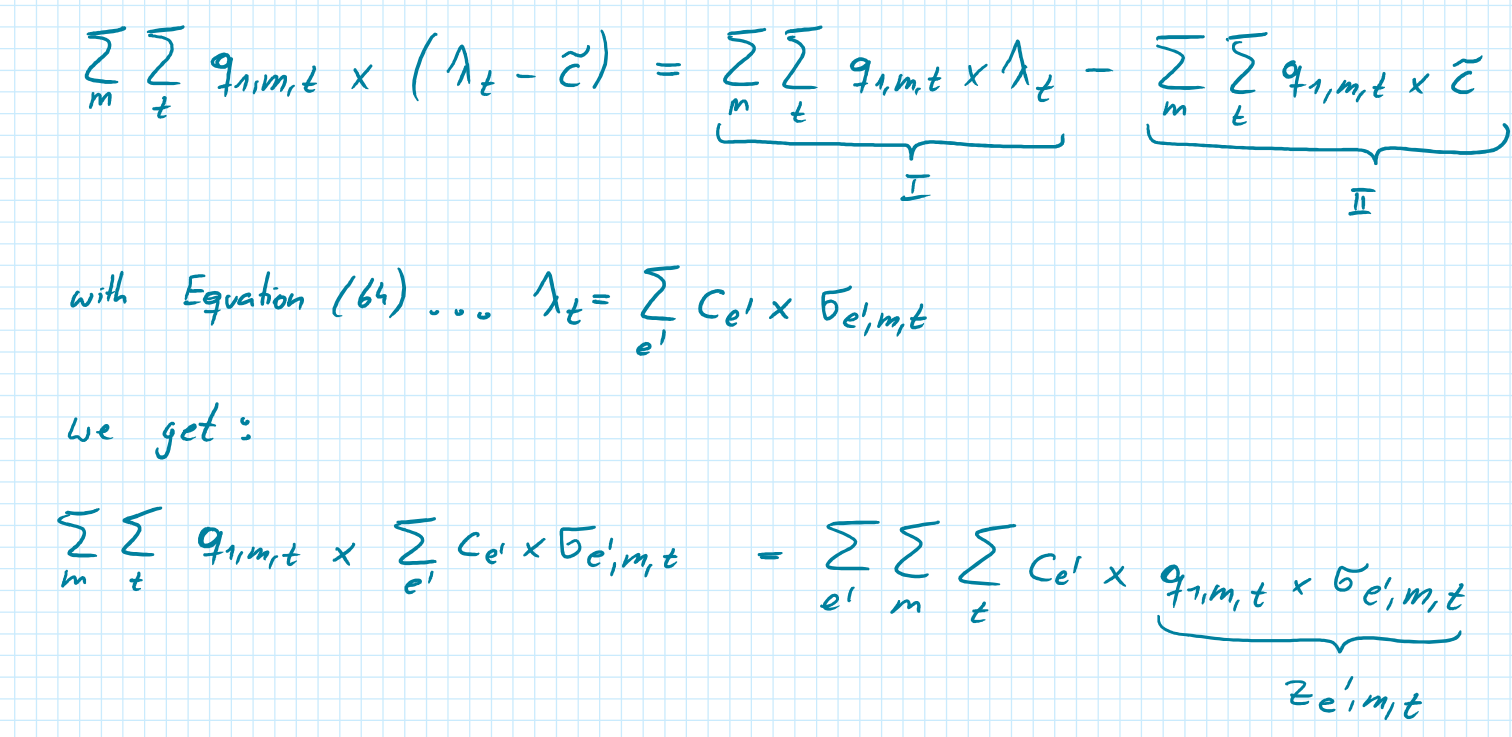 ∑_m ∑_t q_{1,m,t} × (λ_t - c̃) = ∑_m ∑_t q_{1,m,t} × λ_t - ∑_m ∑_t q_{1,m,t} × c̃
I II
with Equation (64) ... λ_t = ∑_{e'} C_{e'} × σ_{e',m,t}
we get:
∑_m ∑_t q_{1,m,t} × ∑_{e'} C_{e'} × σ_{e',m,t} = ∑_{e'} ∑_m ∑_t C_{e'} × q_{1,m,t} × σ_{e',m,t}
z_{e',m,t}